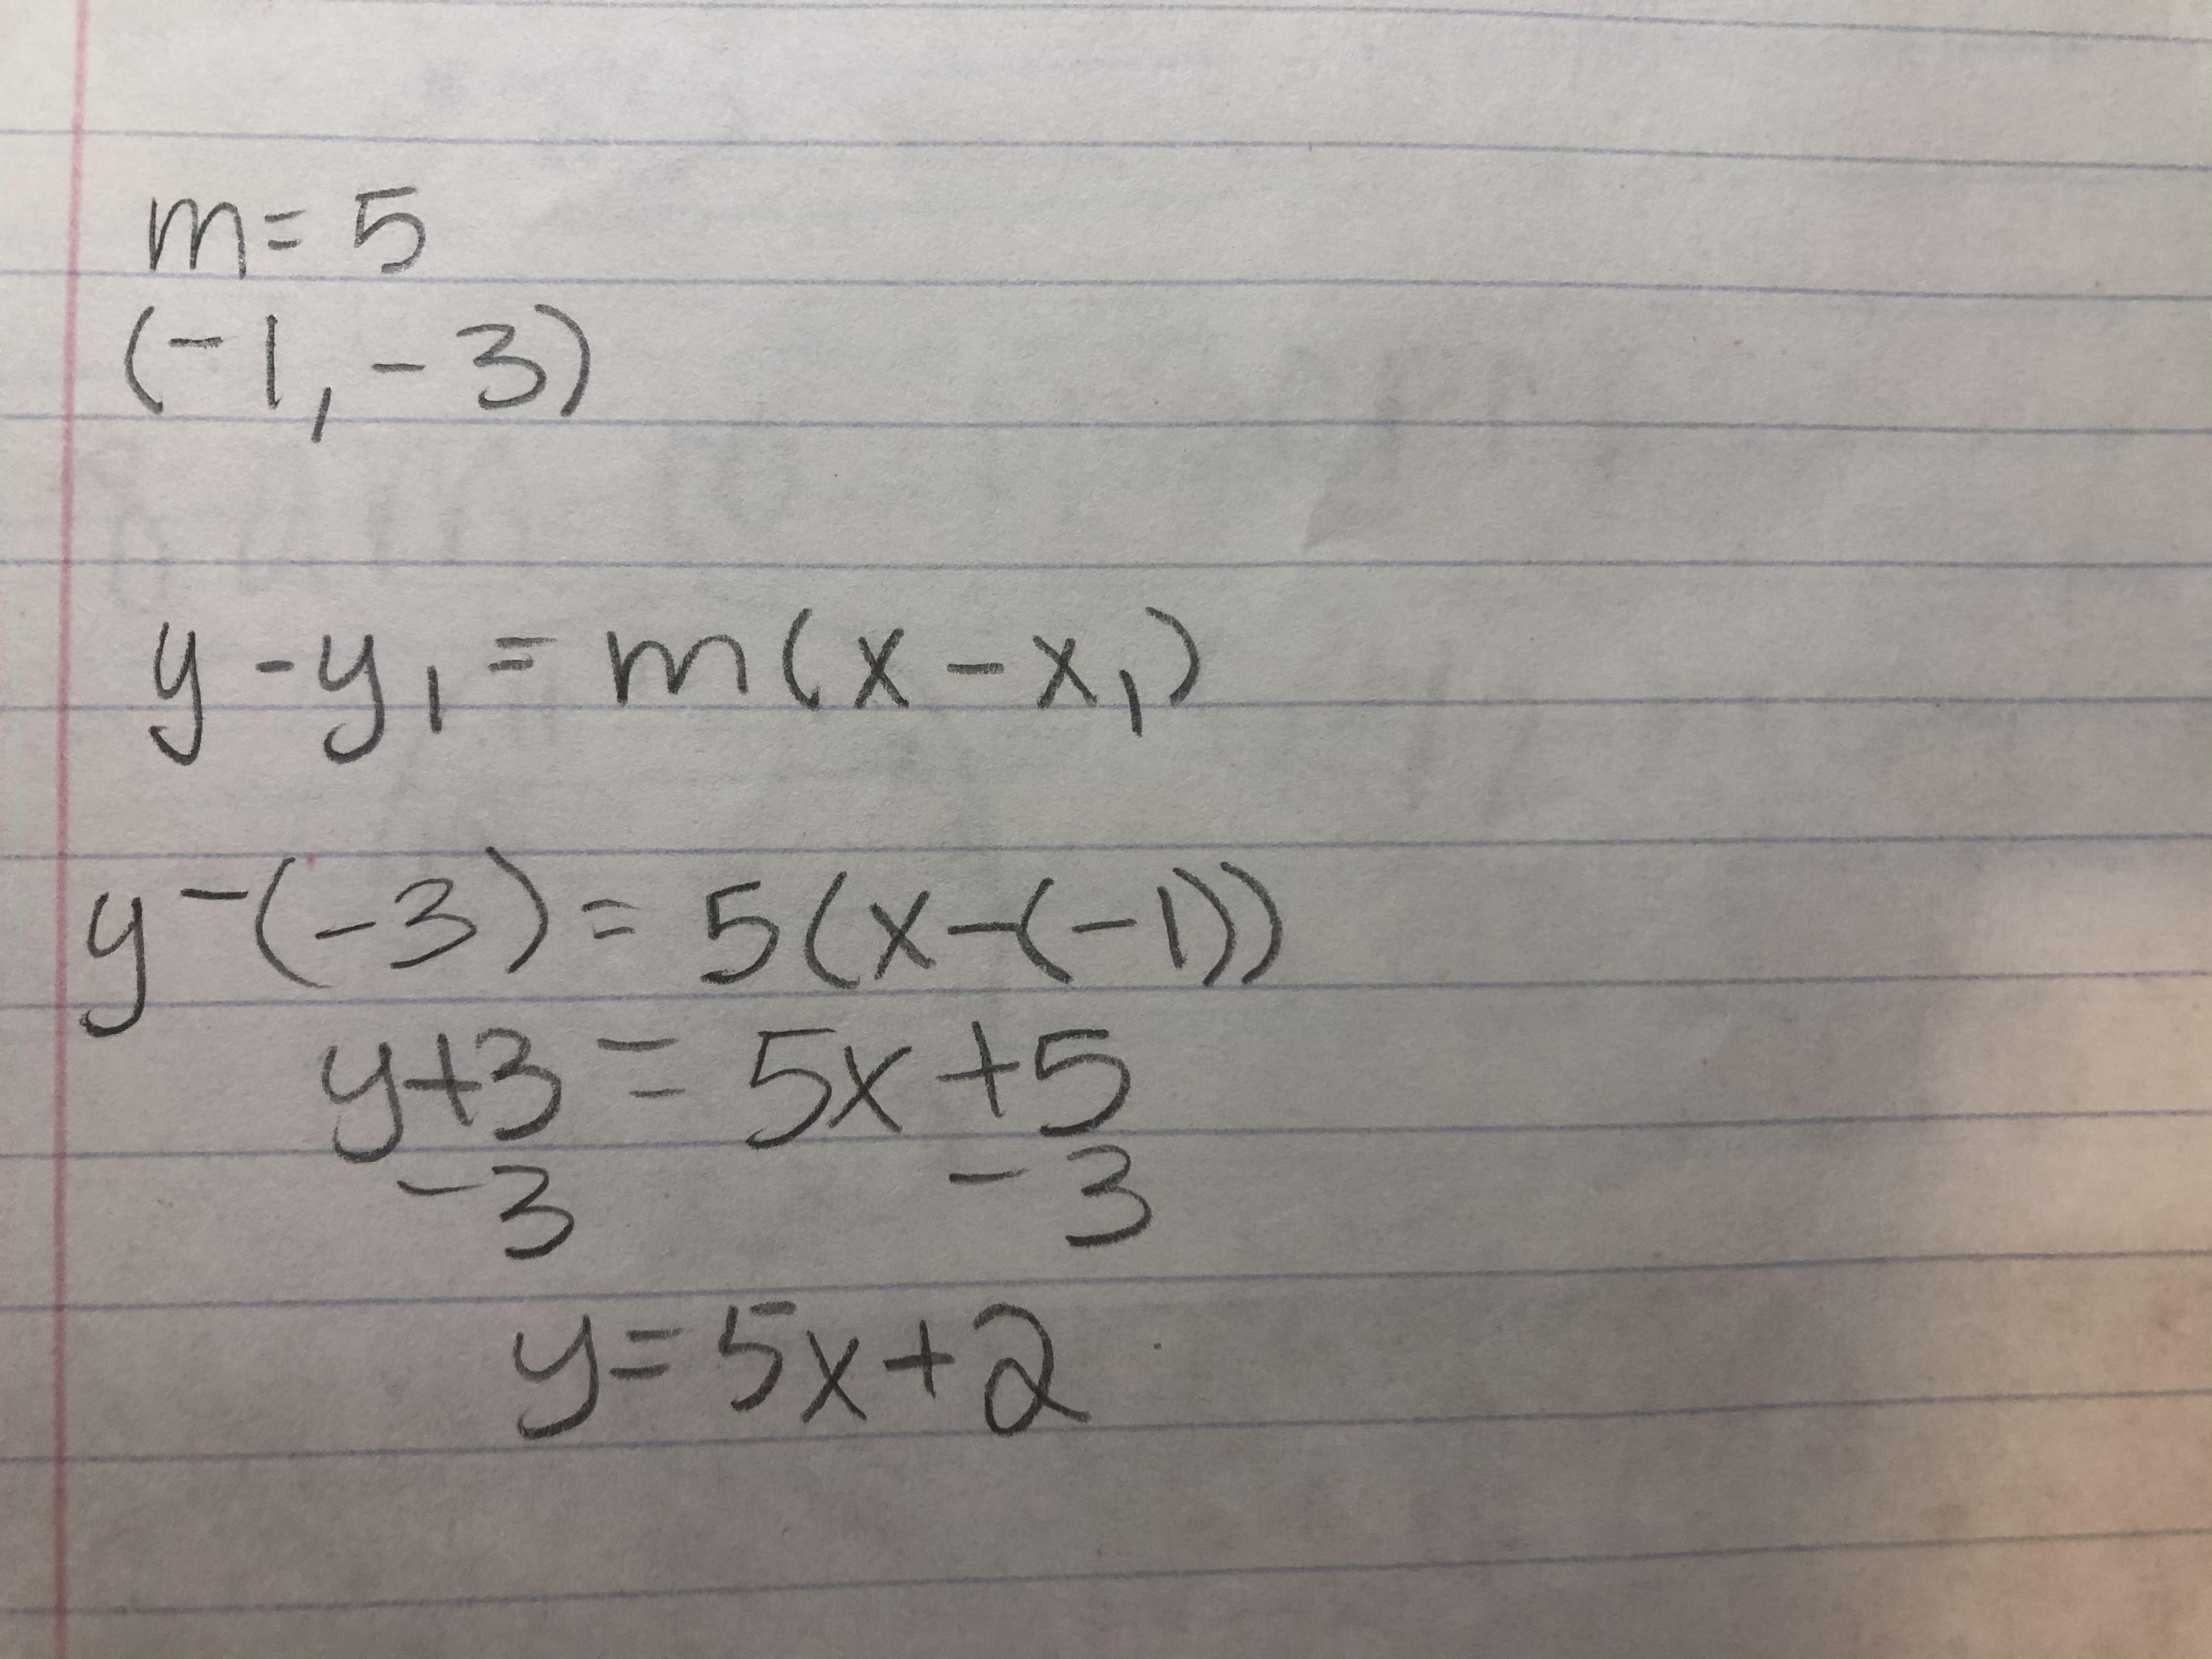 m= 5
(-1, -3)
y - y₁ = m(x - x₁)
y -(-3) = 5(x-(-1))
y+3 = 5x +5
-3 -3
y= 5x+2